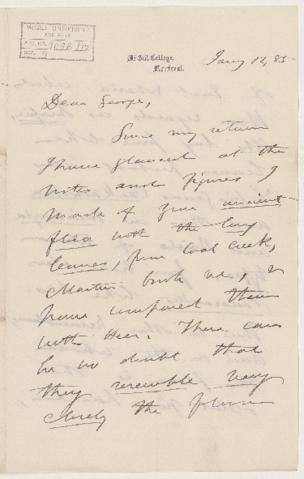 McGill College,
Montreal.
Jany 12, 83
Dear George,
Since my return
I have glanced at the
notes and figures I
made of your ancient
flora with the long
leaves, from Coal Creek,
Martin book &
have compared them
with Heer. There can
be no doubt that
they resemble very
closely the